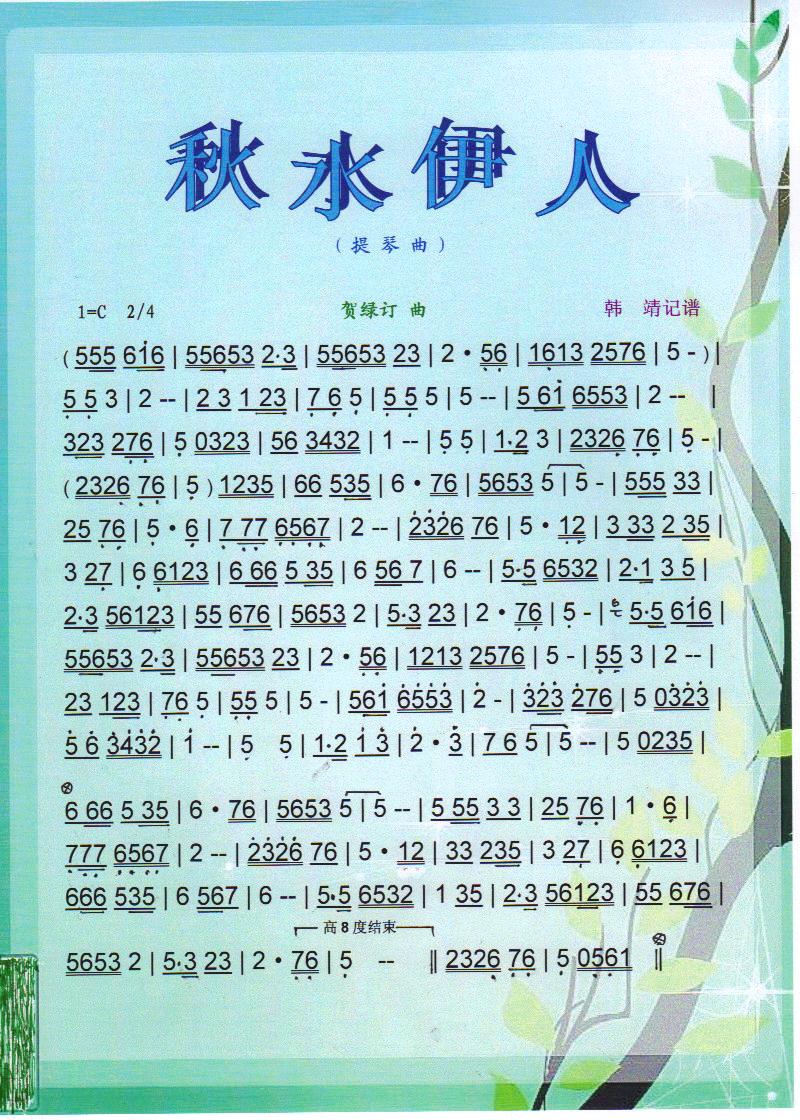 秋水伊人
(提琴曲)
1=C 2/4 贺绿订 曲 韩 靖记谱
(555 6i6 | 55653 2·3 | 55653 23 | 2 · 56 | 1613 2576 | 5 - ) |
5 5 3 | 2 -- | 2 3 1 23 | 7 6 5 | 5 5 5 | 5 -- | 5 61 6553 | 2 -- |
323 276 | 5 0323 | 56 3432 | 1 -- | 5 5 | 1·2 3 | 2326 76 | 5 - |
(2326 76 | 5 ) 1235 | 66 535 | 6 · 76 | 5653 5 | 5 - | 555 33 |
25 76 | 5 · 6 | 7 77 6567 | 2 -- | 2326 76 | 5 · 12 | 3 33 2 35 |
3 27 | 6 6123 | 6 66 5 35 | 6 56 7 | 6 -- | 5·5 6532 | 2·1 3 5 |
2·3 56123 | 55 676 | 5653 2 | 5·3 23 | 2 · 76 | 5 - | 5·5 616 |
55653 2·3 | 55653 23 | 2 · 56 | 1213 2576 | 5 - | 55 3 | 2 -- |
23 123 | 76 5 | 55 5 | 5 - | 561 6553 | 2 - | 323 276 | 5 0323 |
5 6 3432 | 1 -- | 5 5 | 1·2 1 3 | 2 · 3 | 7 6 5 | 5 -- | 5 0235 |
6 66 5 35 | 6 · 76 | 5653 5 | 5 -- | 5 55 3 3 | 25 76 | 1 · 6 |
777 6567 | 2 -- | 2326 76 | 5 · 12 | 33 235 | 3 27 | 6 6123 |
666 535 | 6 567 | 6 -- | 5·5 6532 | 1 35 | 2·3 56123 | 55 676 |
高8度结束
5653 2 | 5·3 23 | 2 · 76 | 5 -- ‖ 2326 76 | 5 0561 ‖